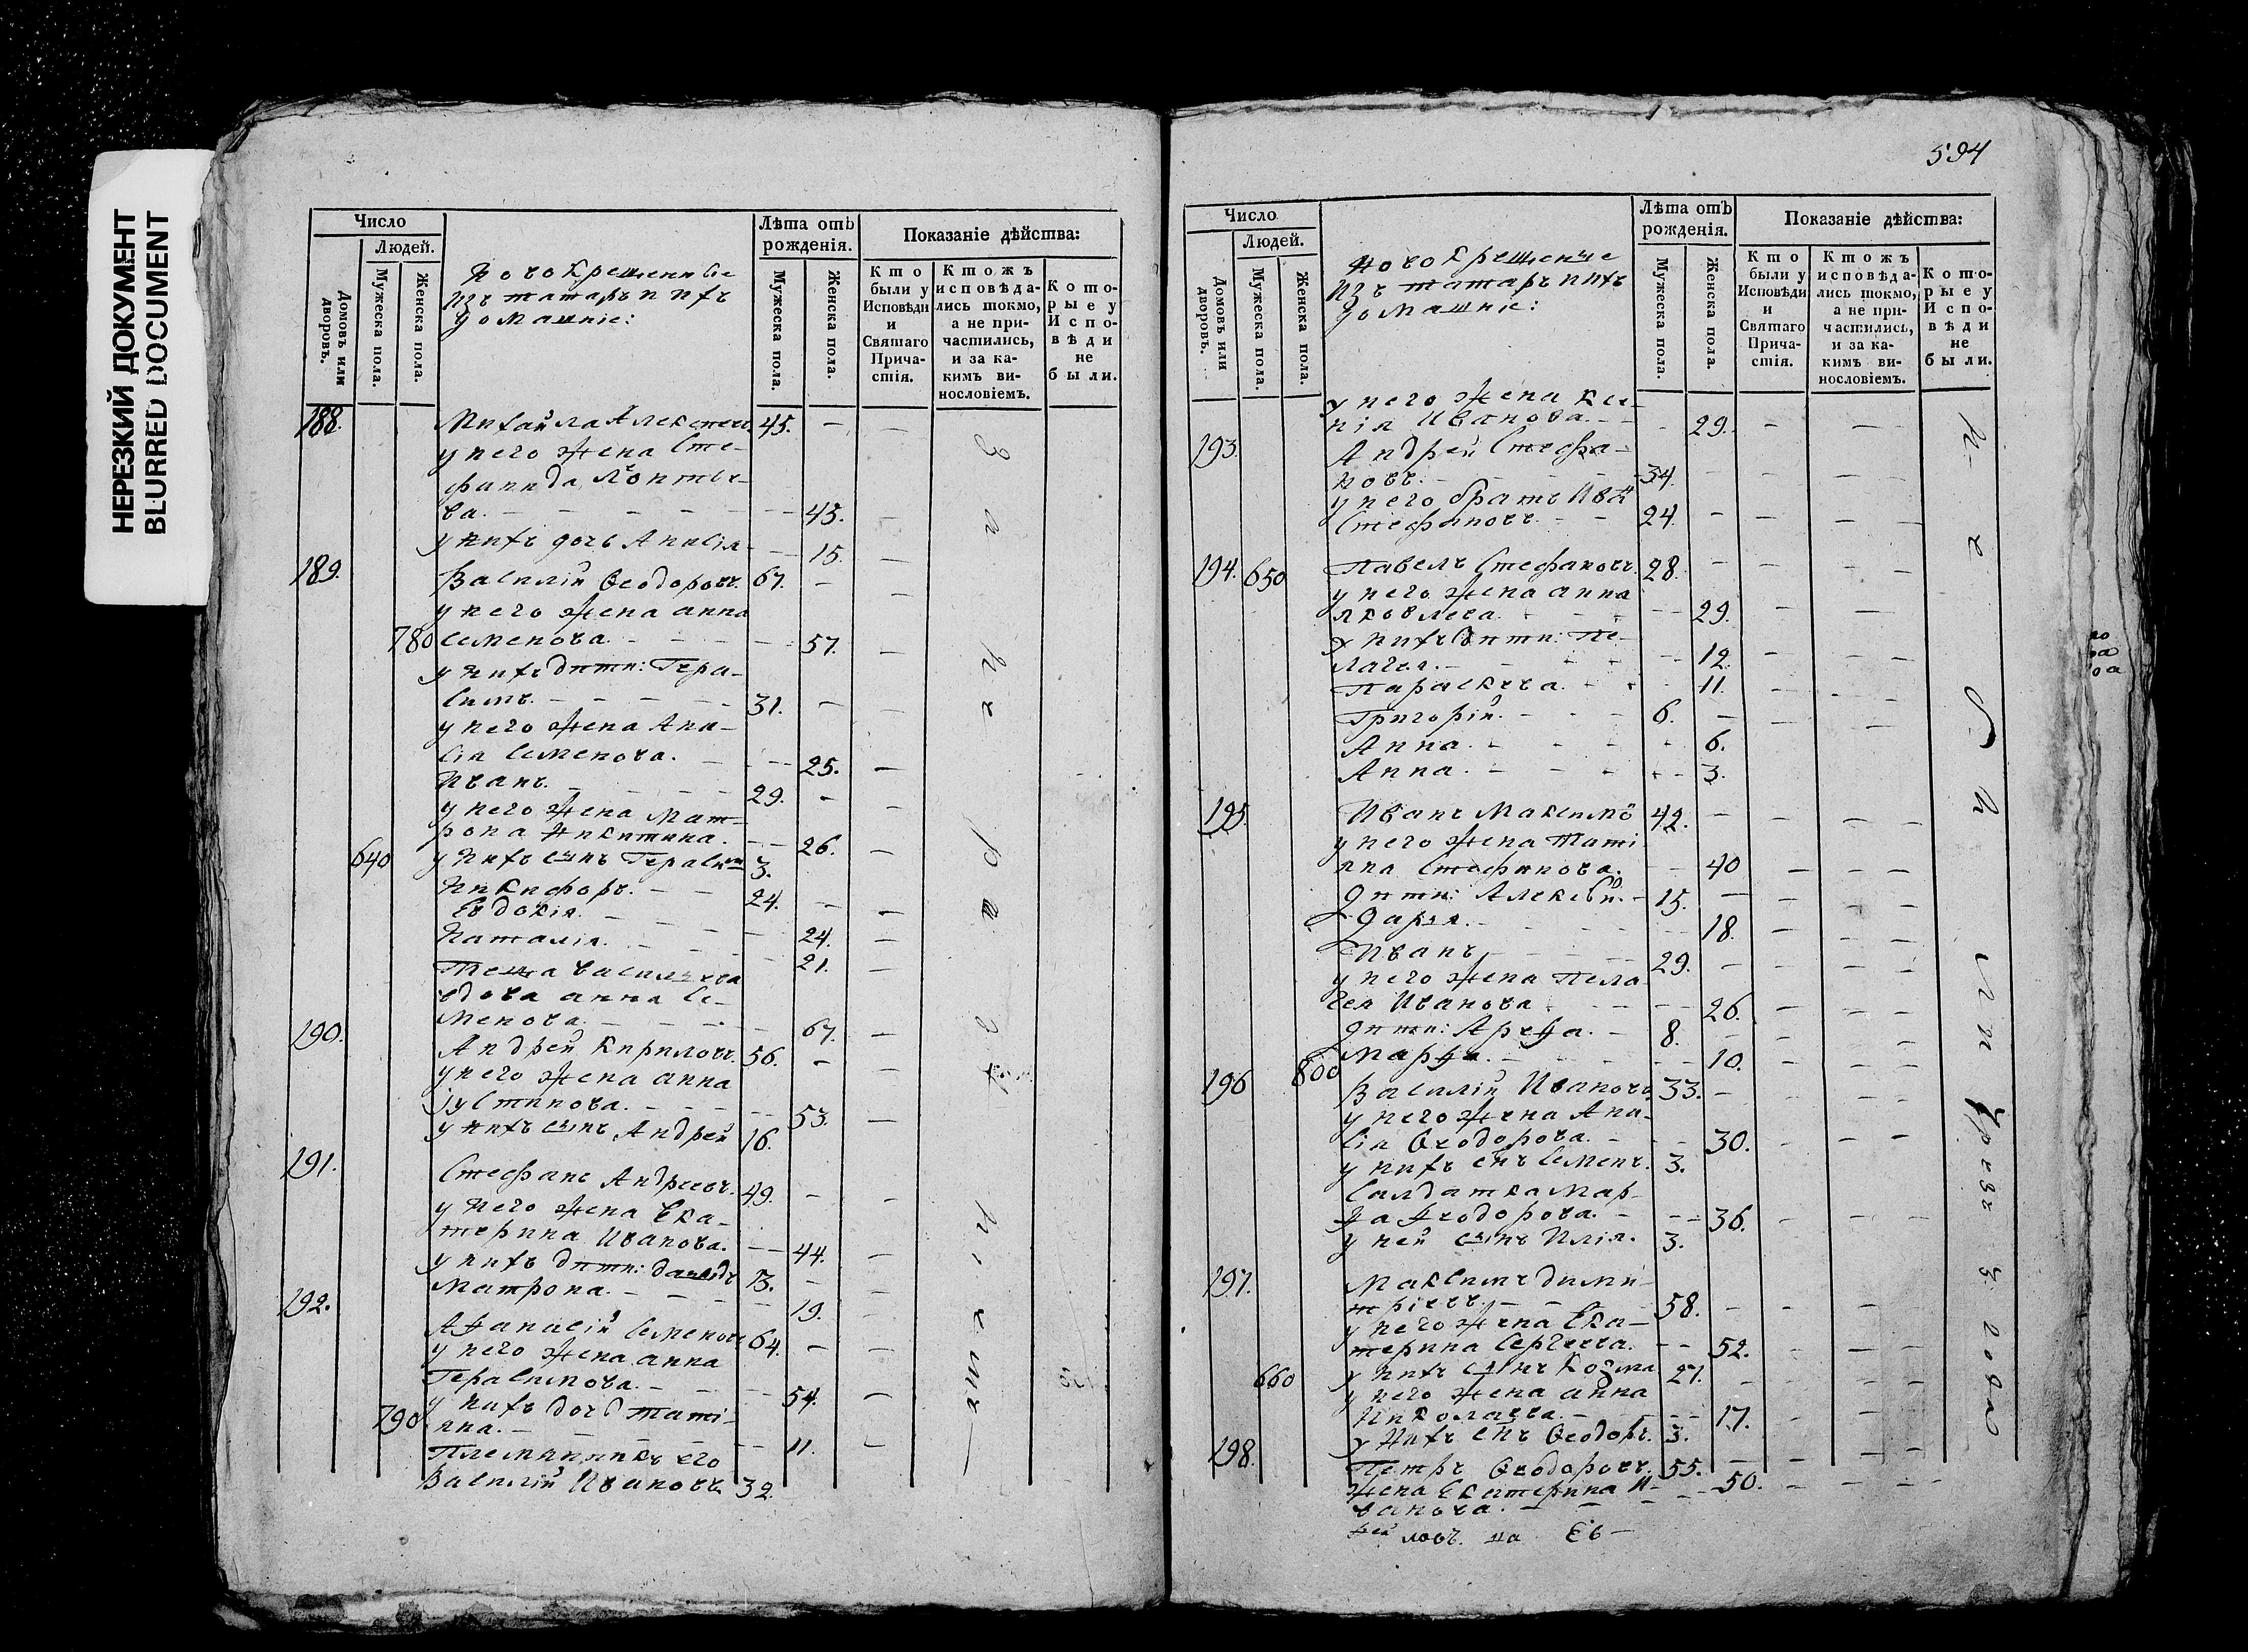 НЕРЕЗКИЙ ДОКУМЕНТ
BLURRED DOCUMENT
Число
Людей.
Домовъ или дворовъ.
Мужеска пола.
Женска пола.
Новокрещенные
изъ татаръ и ихъ
домашніе:
Лѣта отъ
рожденія.
Мужеска пола.
Женска пола.
Показаніе дѣйства:
Кто
были у
Исповѣди
и
Святаго
Прича-
стія.
Ктожъ
исповѣда-
лись токмо,
а не при-
частились,
и за ка-
кимъ ви-
нословіемъ.
Кото-
рые у
Испо-
вѣди
не
были.
188. Михайла Алексеевъ 45. —
у него жена Сте-
ва. 45. —
у нихъ дочь Анисія 15.
189. Василій Ѳеодоровъ. 67. —
у него жена анна
780 семенова. 57. —
у нихъ дити: Гера-
симъ. 31. —
у него жена Ана-
сія Семенова. 25. —
Иванъ. 29. —
у него жена Мат-
рона Никитина. 26. —
640 у нихъ сынъ Герасимъ 3.
Никифоръ. 24. —
Евдокія. 24. —
Наталія. 21. —
Теща васильева
вдова анна Се-
менова. 67. —
190. Андрей Кириловъ. 56. —
у него жена анна
Іустинова. 53. —
у нихъ сынъ Андрей 16.
191. Стефанъ Андреевъ. 49. —
у него жена Ека-
терина Иванова. 44. —
у нихъ дити: давидъ 13. —
Матрона. 19. —
192. Аѳанасій Семеновъ 64. —
у него жена анна
Герасимова. 54. —
у нихъ дочь Таті-
790 яна. 11. —
Племянникъ его
Василій Ивановъ 32.
594
Число
Людей.
Домовъ или дворовъ.
Мужеска пола.
Женска пола.
Новокрещеные
изъ татаръ и ихъ
домашніе:
Лѣта отъ
рожденія.
Мужеска пола.
Женска пола.
Показаніе дѣйства:
Кто
были у
Исповѣди
и
Святаго
Прича-
стія.
Ктожъ
исповѣда-
лись токмо,
а не при-
частились,
и за ка-
кимъ ви-
нословіемъ.
Кото-
рые у
Испо-
вѣди
не
были.
у него жена Ксе-
нія Иванова. 29. —
193. Андрей Стефа-
новъ. 34. —
у него братъ Ива
Стефановъ. 24. —
194. 650 Павелъ Стефановъ. 28. —
у него жена анна
яковлева. 29. —
у нихъ дити: Пе-
лагея. 12. —
Параскева. 11. —
Григорій. 6. —
Анна. 6. —
Анна. 3. —
195. Иванъ Максимо 42. —
у него жена Таті
яна Стефанова. 40 —
дити: Алексѣй. 15. —
Дарья. 18. —
Иванъ 29. —
у него жена Пела
гея Иванова 26. —
дити: Арефа. 8. —
800 Марфа. 10. —
196 Василій Ивановъ 33. —
у него жена Ана-
сія Ѳеодорова. 30. —
у нихъ снъ Семенъ. 3.
Салдатка Мар-
ѳа Ѳеодорова. 36. —
у ней сынъ Илія. 3.
197. Максимъ дими-
тріевъ. 58. —
у него жена Ека-
терина Сергеева. 52. —
660 у нихъ сынъ Козма 27. —
у него жена анна
Николаева. 17. —
у нихъ снъ Ѳеодоръ. 3.
198. Петръ Ѳеодоровъ. 55. —
жена Екатерина И- 50. —
ванова.
ловъ. на Ев—